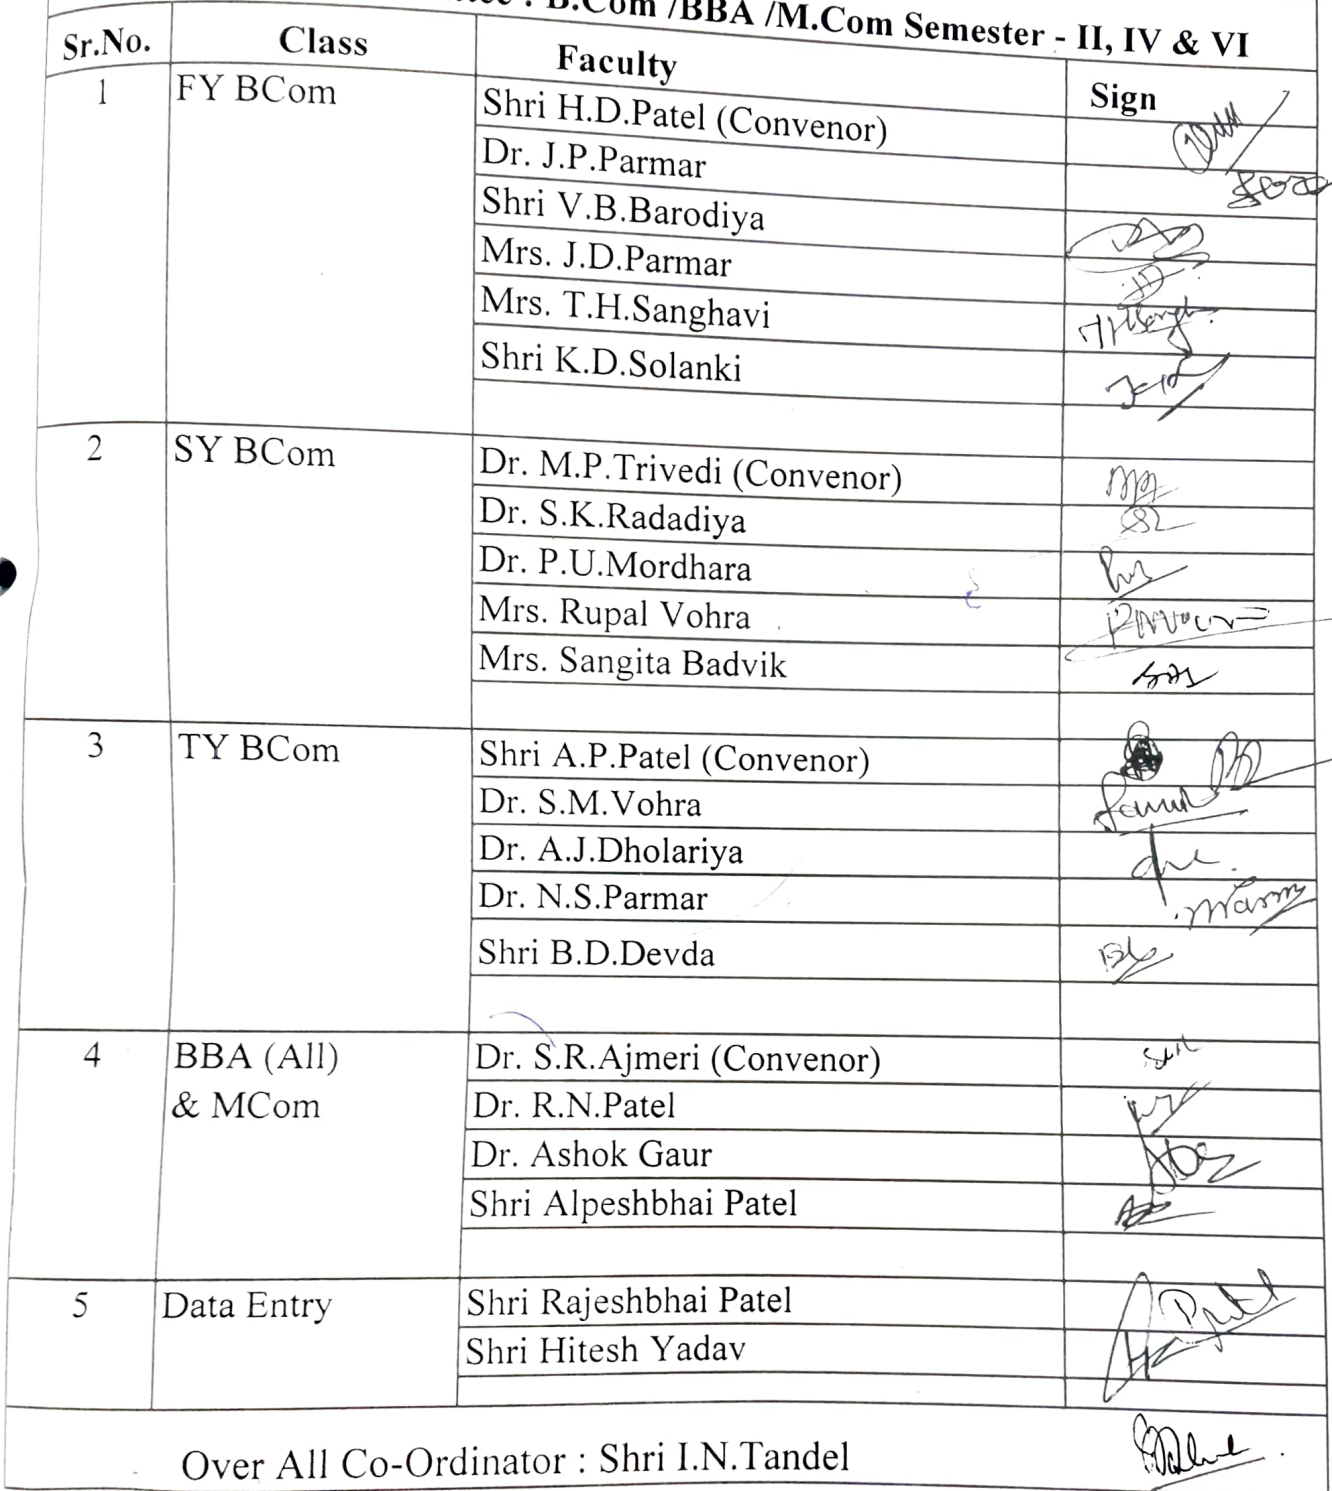 : B.Com /BBA /M.Com Semester - II, IV & VI
Sr.No. Class Faculty Sign
1 FY BCom Shri H.D.Patel (Convenor)
Dr. J.P.Parmar
Shri V.B.Barodiya
Mrs. J.D.Parmar
Mrs. T.H.Sanghavi
Shri K.D.Solanki
2 SY BCom Dr. M.P.Trivedi (Convenor)
Dr. S.K.Radadiya
Dr. P.U.Mordhara
Mrs. Rupal Vohra
Mrs. Sangita Badvik
3 TY BCom Shri A.P.Patel (Convenor)
Dr. S.M.Vohra
Dr. A.J.Dholariya
Dr. N.S.Parmar
Shri B.D.Devda
4 BBA (All) Dr. S.R.Ajmeri (Convenor)
& MCom Dr. R.N.Patel
Dr. Ashok Gaur
Shri Alpeshbhai Patel
5 Data Entry Shri Rajeshbhai Patel
Shri Hitesh Yadav
Over All Co-Ordinator : Shri I.N.Tandel